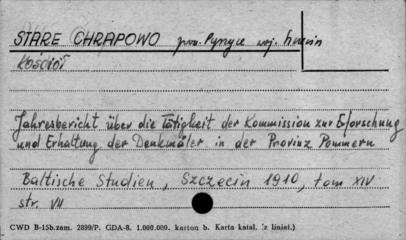 STARE CHRAPOWO pow. Pyrzyce woj. Szczecin
Kościół
Jahresbericht über die Tätigkeit der Kommission zur Erforschung
und Erhaltung der Denkmäler in der Provinz Pommern
Baltische Studien, Szczecin 1910, tom XIV
str. VII
CWD B-15b.zam. 2899/P. GDA-8. 1.000.000. karton b. Karta katal. (z liniat.)